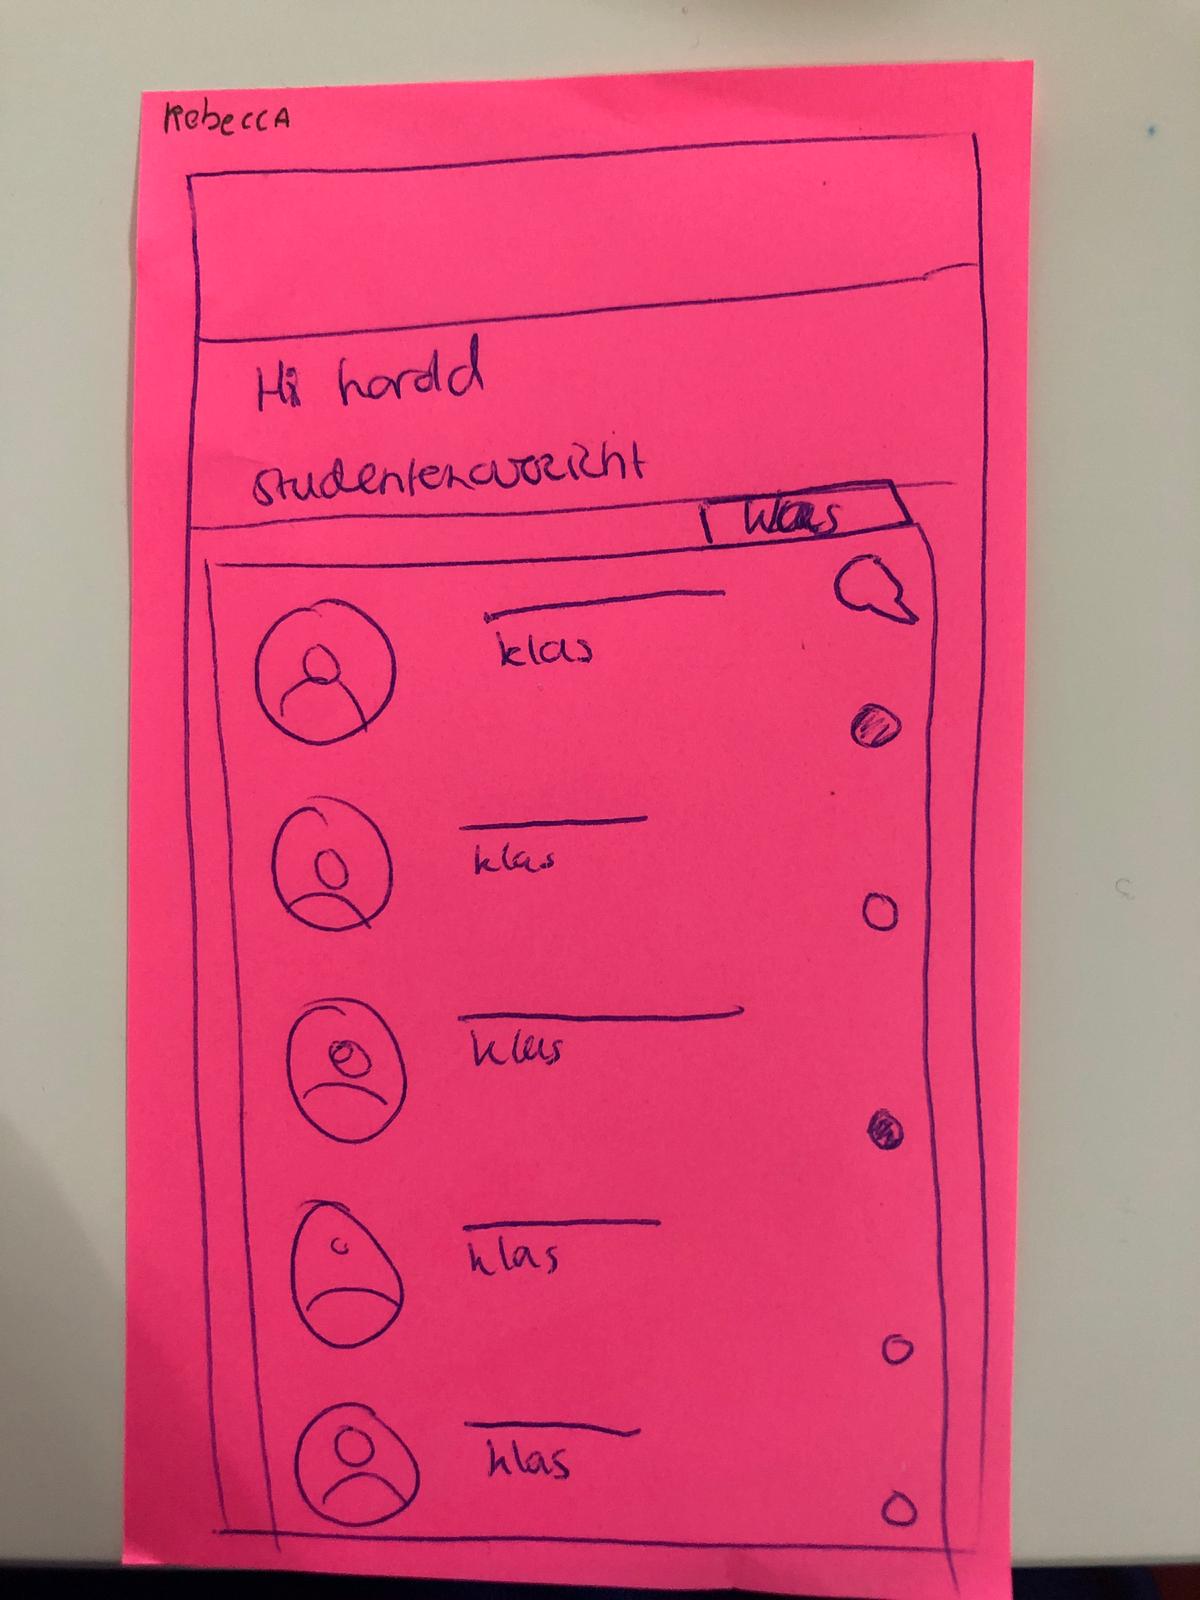 RebeccA
Hi harold
studentenoverzicht
klas
klas
klas
klas
klas
klas